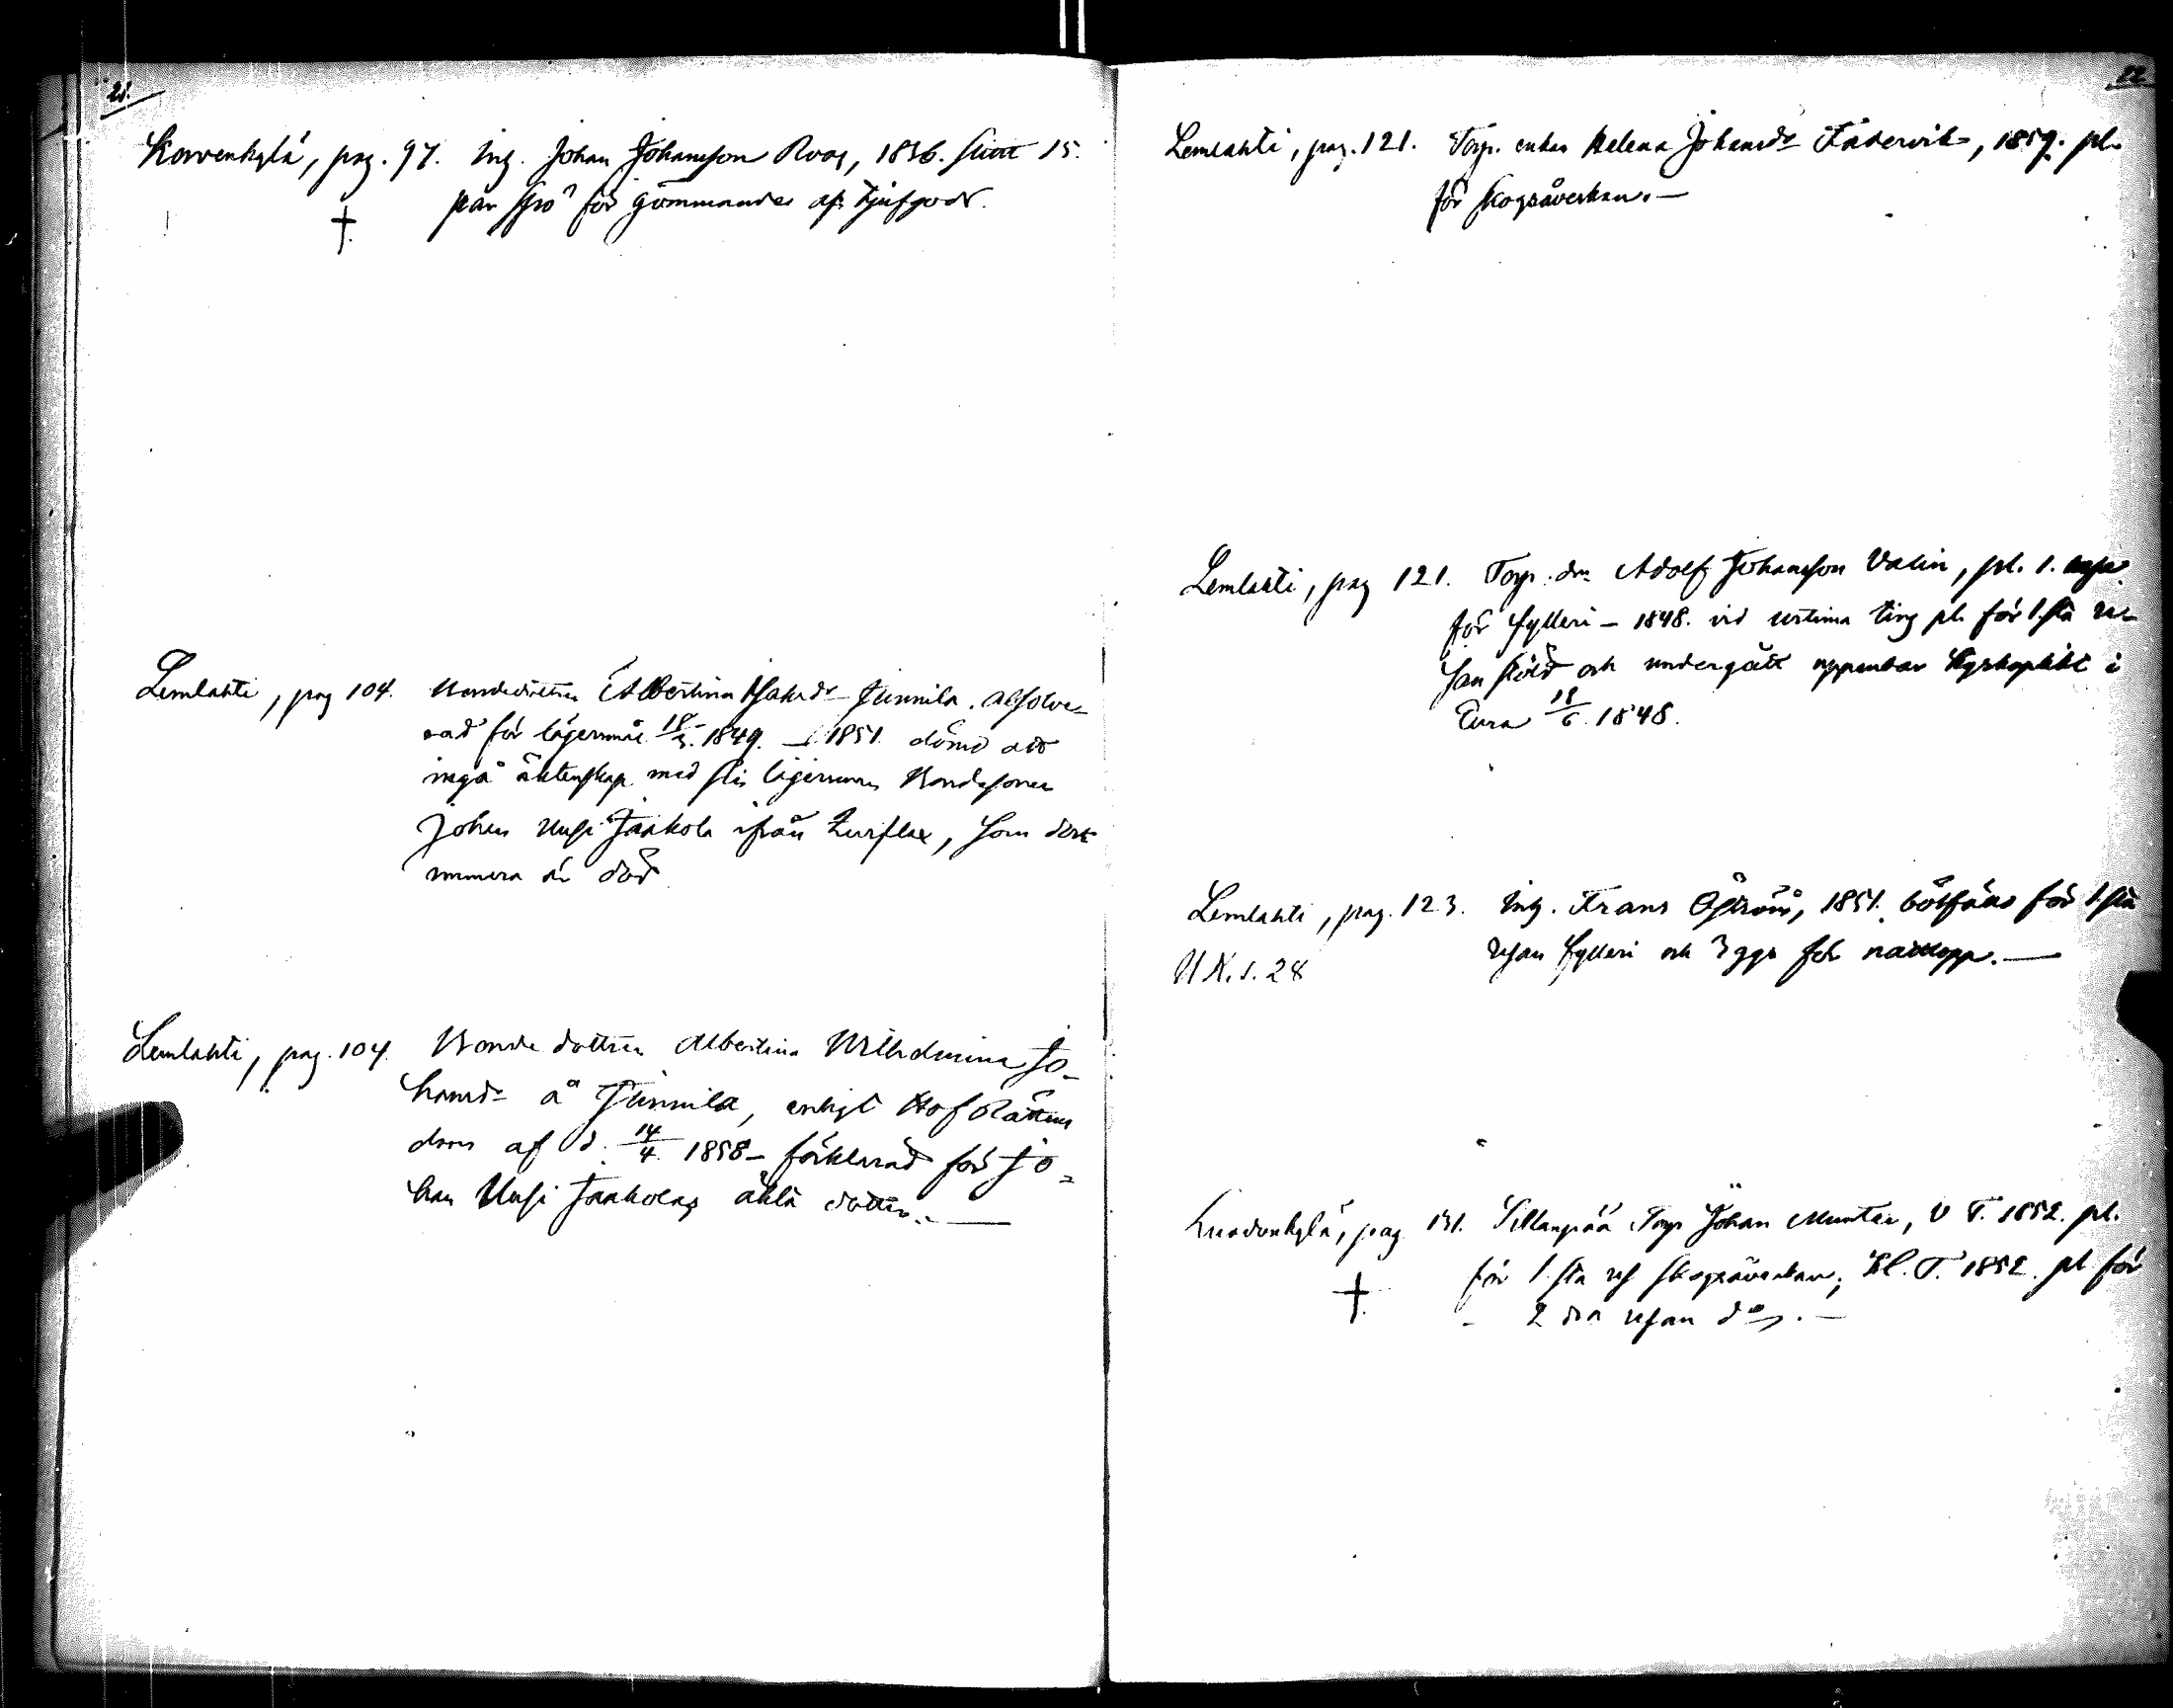 21.
Korvenkylä, pag. 97. Inh. Johan Johansson Roos, 1836. slitit 15.
par spö för gömmandes af tjufgods.
†
Lemlahti, pag 104. Bondedottren Albertina Isaksdr Junnila. absolve-
rad för lägersmål 18/3. 1849. – 1851. dömd att
ingå äktenskap med sin lägersman Bondesonen
Johan Uusi Jaakola ifrån, som der
numera är död
Lemlahti, pag. 104. Bonde dottren Albertina Wilhelmina Jo-
hansdr å Junnila, enligt Hof Rättens
dom af d. 14/4 1858 – förklarad för Jo-
han Uusi Jaakolas äkta dotter. —
22
Lemlahti, pag. 121. Torp. enkan Helena Johansdr Södervik, 1859. pl.
för skogsåverkan. —
Lemlahti, pag 121. Torp. dr. Adolf Johansson Valin, pl. 1.
för fylleri – 1848. vid urtima ting pl. för 1.sta re-
san stöld och undergått uppenbar kyrkoplikt i
Eura 18/6. 1848.
Lemlahti, pag. 123. Inh. Frans Öström, 1851. bötfäld för 1.sta
resan fylleri och 3 ggr för —
N.K.s. 28
pag 131. Sillanpää Torp Johan Munter, V T. 1852. pl.
för 1.sta res skogsåverkan; H.T. 1852. pl för
2 dra resan do. —
†